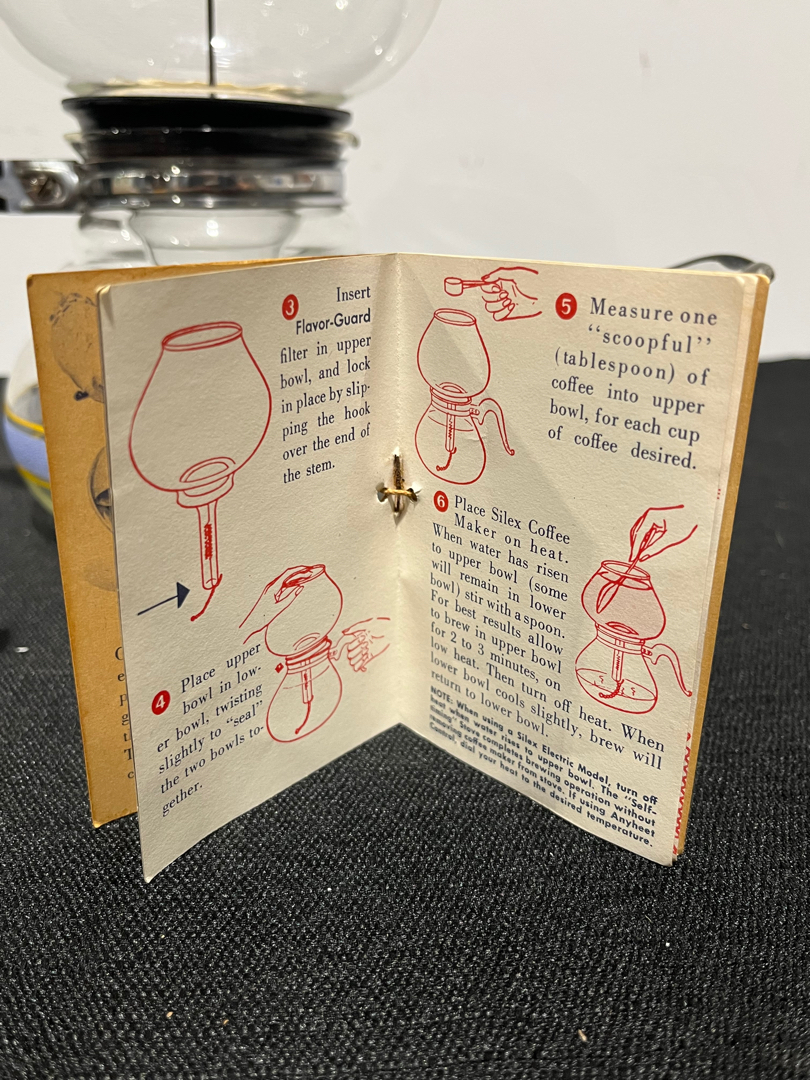 3 Insert
Flavor-Guard
filter in upper
bowl, and lock
in place by slip-
ping the hook
over the end of
the stem.
4 Place upper
bowl in low-
er bowl, twisting
slightly to “seal”
the two bowls to-
gether.
5 Measure one
“scoopful”
(tablespoon) of
coffee into upper
bowl, for each cup
of coffee desired.
6 Place Silex Coffee
Maker on heat.
When water has risen
to upper bowl (some
will remain in lower
bowl) stir with a spoon.
For best results allow
to brew in upper bowl
for 2 to 3 minutes, on
low heat. Then turn off heat. When
lower bowl cools slightly, brew will
return to lower bowl.
NOTE: When using a Silex Electric Model, turn off
heat when water rises to upper bowl. The “Self-
Timing” Stove completes brewing operation without
removing coffee maker from stove. If using Anyheet
Control, dial your heat to the desired temperature.